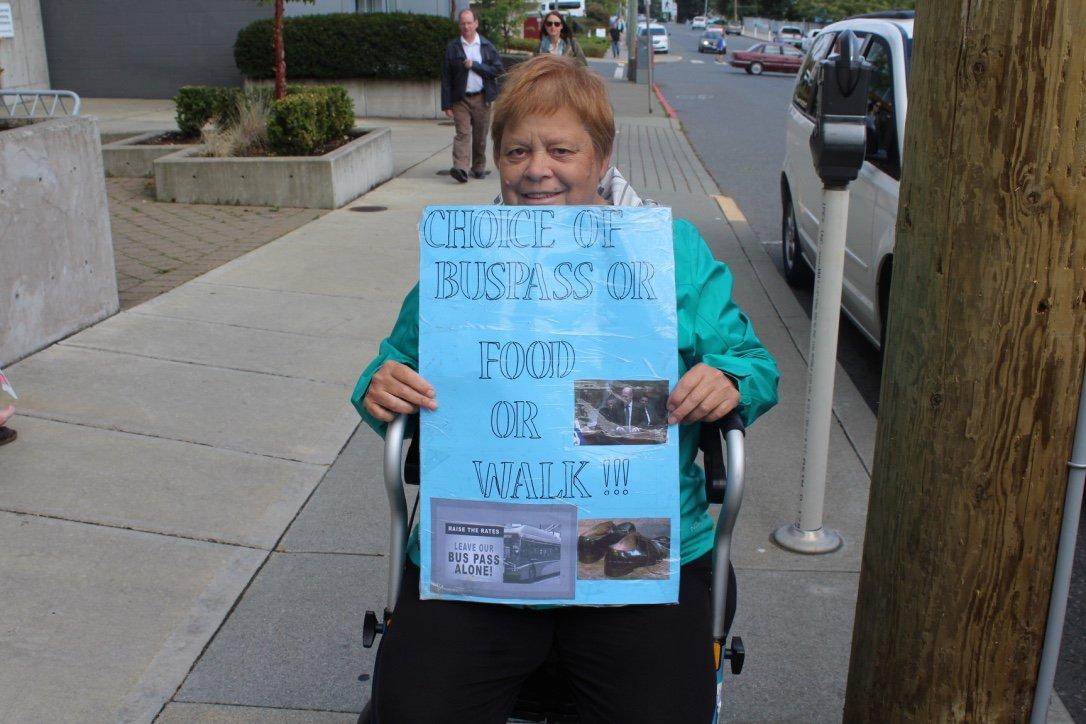 CHOICE OF
BUSPASS OR
FOOD
OR
WALK !!!
RAISE THE RATES
LEAVE OUR
BUS PASS
ALONE!